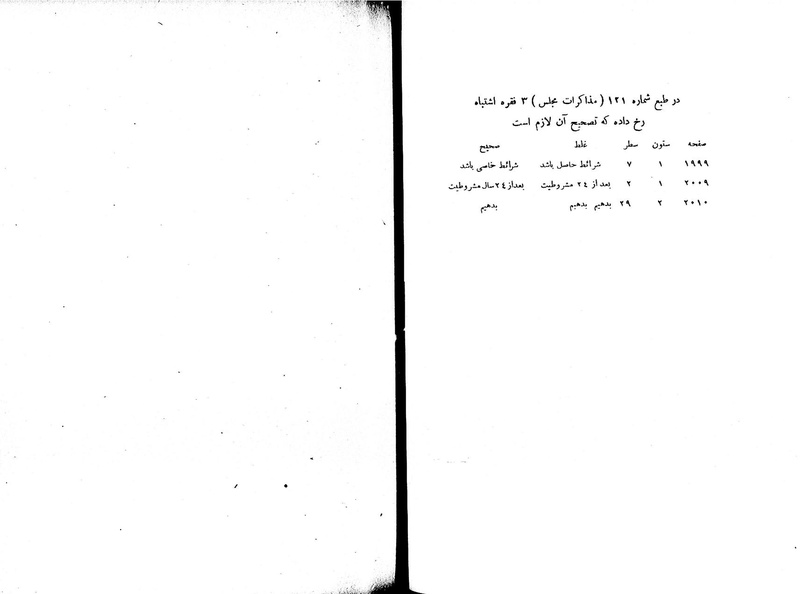 در طبع شماره ۱۲۱ ( مذاکرات مجلس ) ۳ فقره اشتباه
رخ داده که تصحیح آن لازم است
صفحه ستون سطر غلط صحیح
۱۹۹۹ ۱ ۷ شرائط حاصل باشد شرائط خاصی باشد
۲۰۰۹ ۱ ۲ بعد از ٢٤ مشروطیت بعد از ٢٤ سال مشروطیت
۲۰۱۰ ۲ ۲۹ بدهیم بدهیم بدهیم